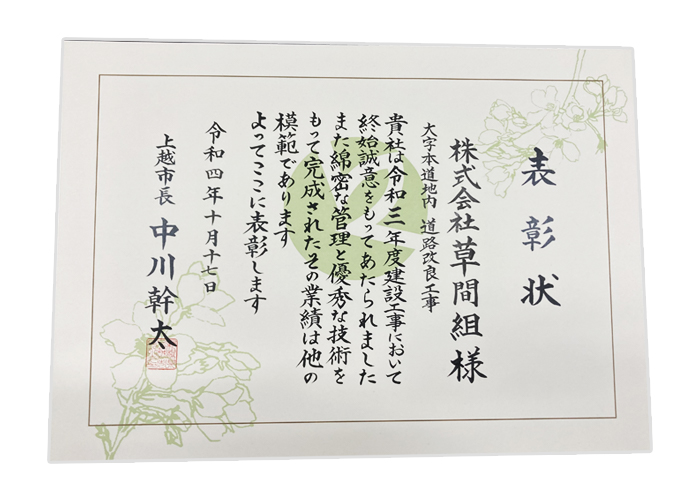 表彰状
株式会社草間組様
大字本道地内 道路改良工事
貴社は令和三年度建設工事において
終始誠意をもってあたられました
また綿密な管理と優秀な技術を
もって完成されたその業績は他の
模範であります
よってここに表彰します
令和四年十月十七日
上越市長 中川幹太